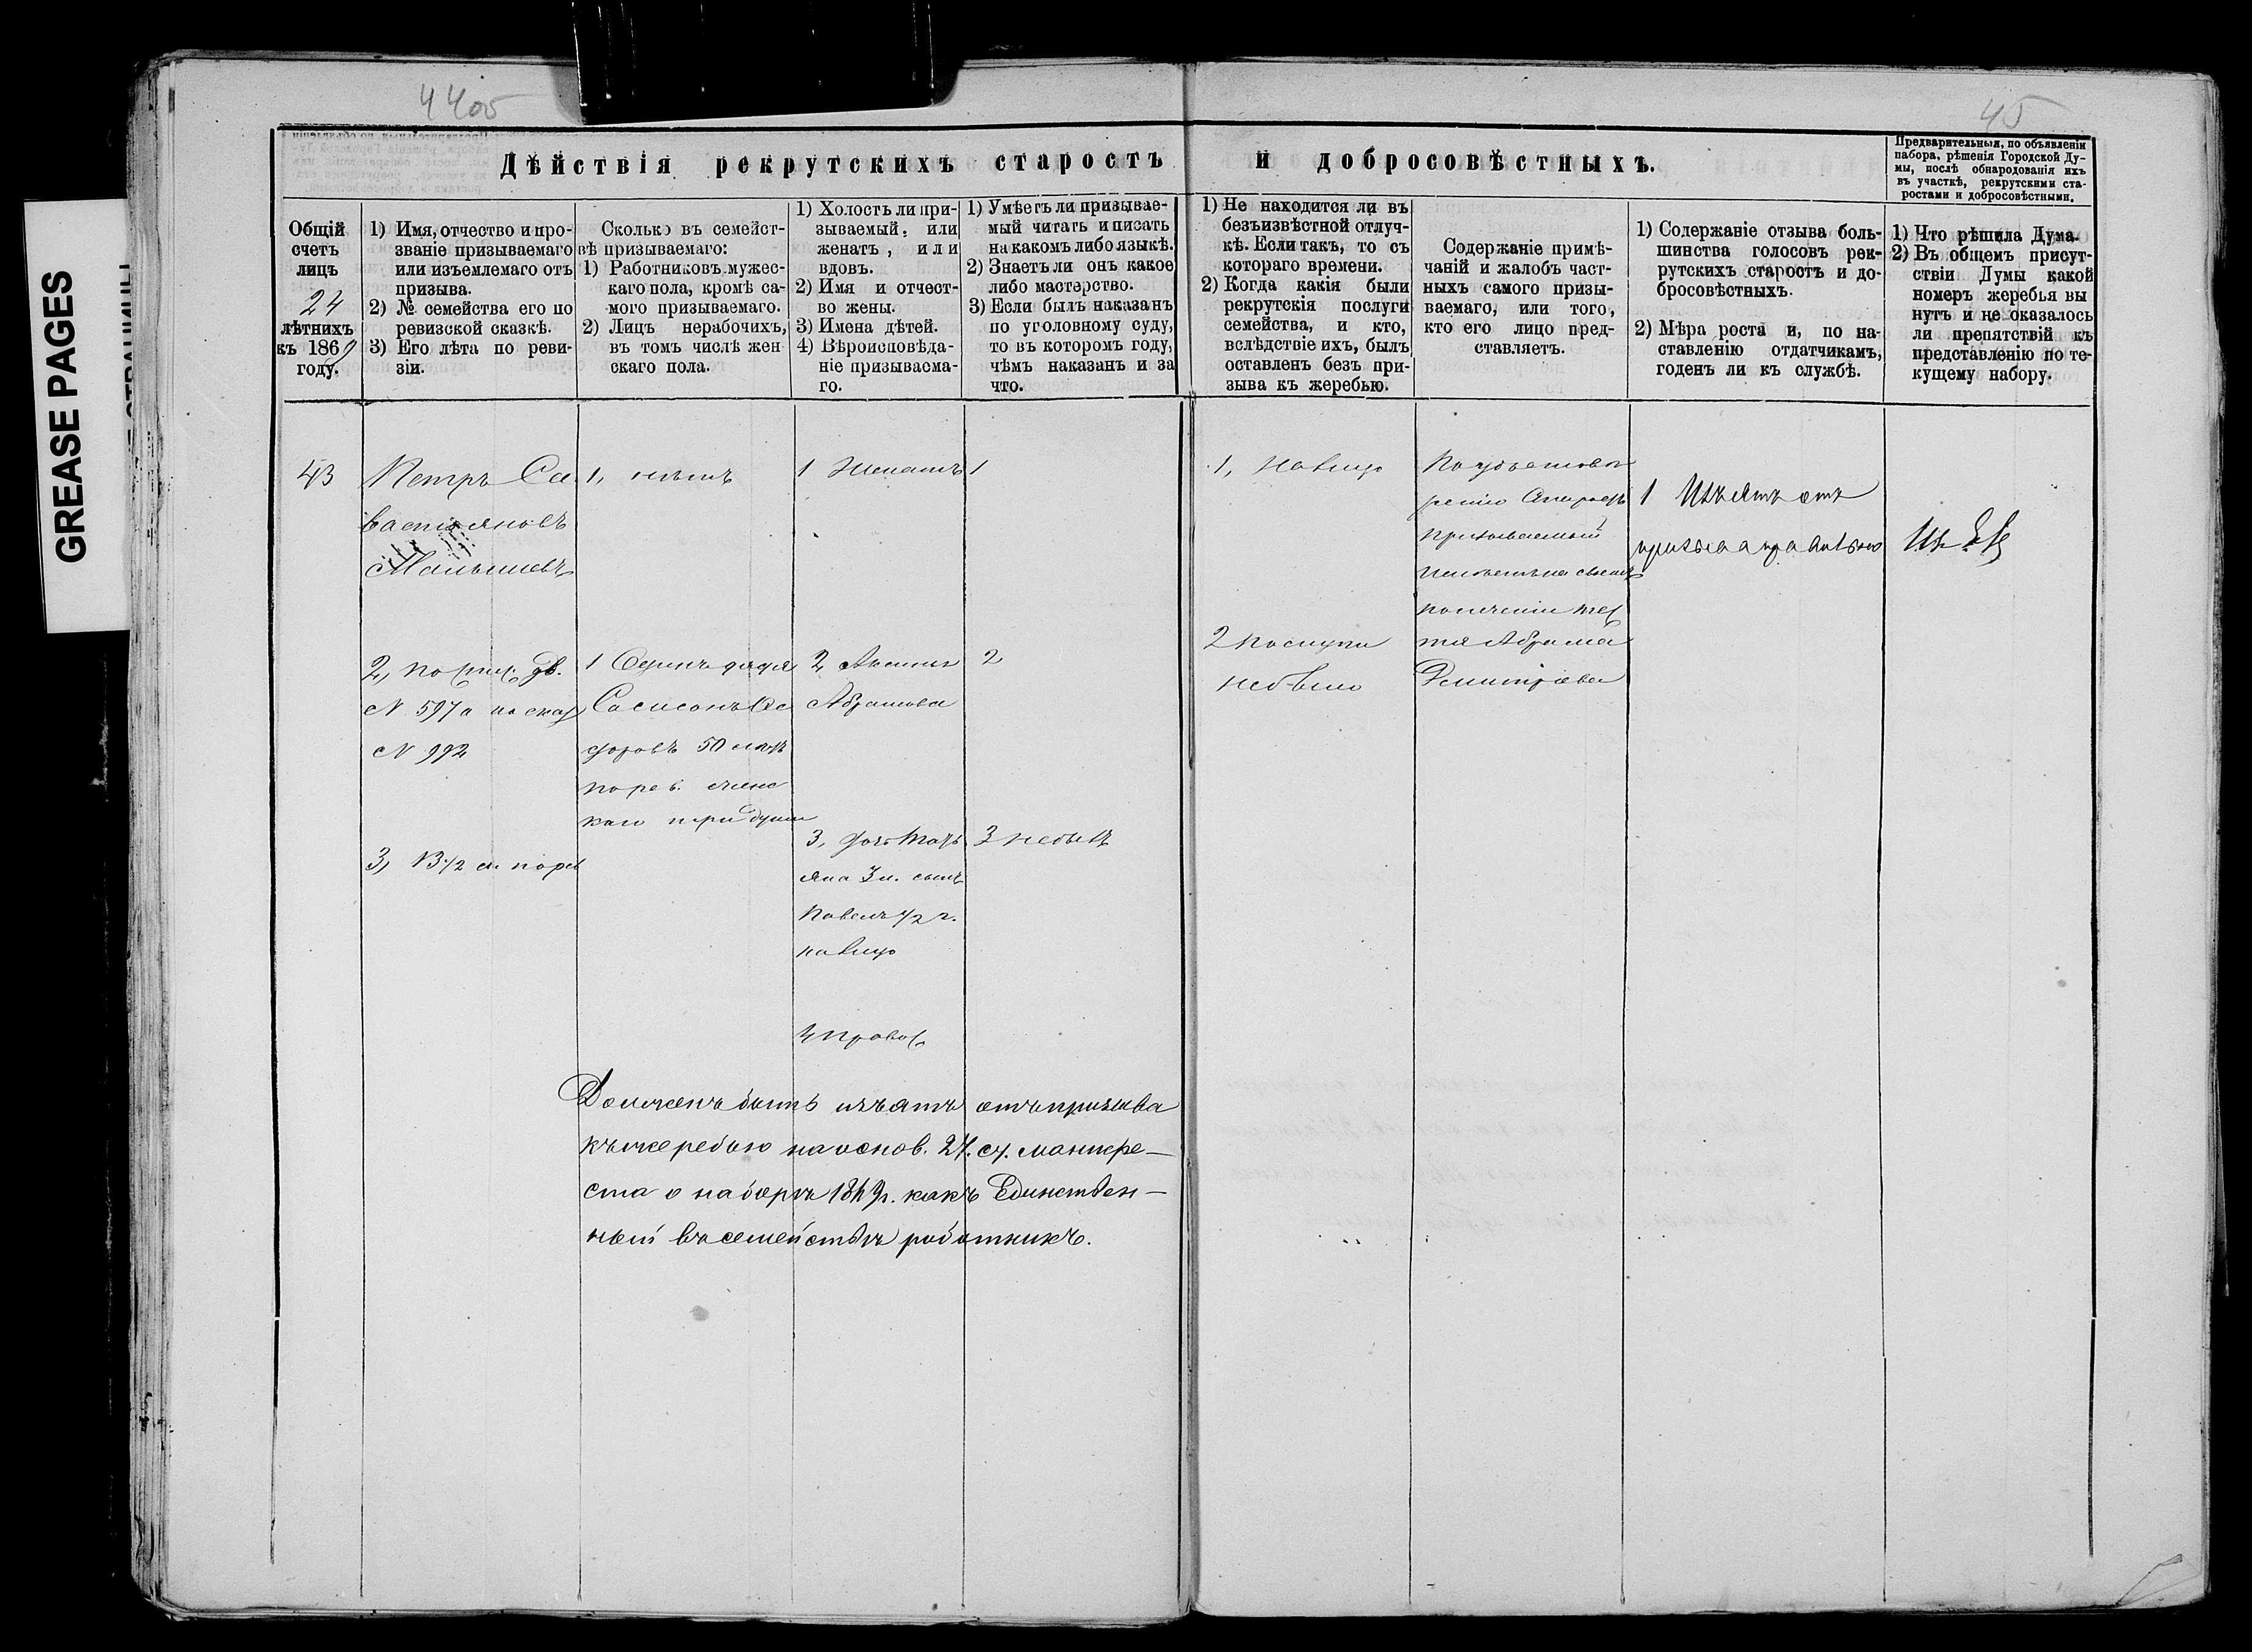 GREASE PAGES
44об
45
Дѣйствія рекрутскихъ старостъ и добросовѣстныхъ.
Предварительныя, по объявленіи
набора, рѣшенія Городской Ду-
мы, послѣ обнародованія ихъ
въ участкѣ, рекрутскими ста-
ростами и добросовѣстными.
Общій
счетъ
лицъ
24
лѣтнихъ
къ 1869
году.
1) Имя, отчество и про-
званіе призываемаго
или изъемлемаго отъ
призыва.
2) № семейства его по
ревизской сказкѣ.
3) Его лѣта по реви-
зіи.
Сколько въ семейст-
вѣ призываемаго:
1) Работниковъ мужес-
каго пола, кромѣ са-
мого призываемаго.
2) Лицъ нерабочихъ,
въ томъ числѣ жен
скаго пола.
1) Холостъ ли при-
зываемый, или
женатъ, или
вдовъ.
2) Имя и отчест-
во жены.
3) Имена дѣтей.
4) Вѣроисповѣда-
ніе призываема-
го.
1) Умѣетъ ли призывае-
мый читать и писать
на какомъ либо языкѣ.
2) Знаетъ ли онъ какое
либо мастерство.
3) Если былъ наказанъ
по уголовному суду,
то въ которомъ году,
чѣмъ наказанъ и за
что.
1) Не находится ли въ
безъизвѣстной отлуч-
кѣ. Если такъ, то съ
котораго времени.
2) Когда какія были
рекрутскія послуги
семейства, и кто,
вслѣдствіе ихъ, былъ
оставленъ безъ при-
зыва къ жеребью.
Содержаніе примѣ-
чаній и жалобъ част-
ныхъ самого призы-
ваемаго, или того,
кто его лицо пред-
ставляетъ.
1) Содержаніе отзыва боль-
шинства голосовъ рек-
рутскихъ старостъ и до-
бросовѣстныхъ.
2) Мѣра роста и, по на-
ставленію отдатчикамъ,
годенъ ли къ службѣ.
1) Что рѣшила Дума.
2) Въ общемъ присут-
ствіи Думы какой
номеръ жеребья вы
нутъ и не оказалось
ли препятствій къ
представленію по те-
кущему набору.
43
Петръ Са
вастьяновъ
Малышевъ
2, по
№ 597 а по сказ
№ 992
3, 13 1/2 л. по рев
1, нѣтъ
1 Одинъ дядя
Самсонъ Ѳе
доровъ 50 лѣтъ
по рев. женс
каго три души
1 Женатъ
2,
Абрамова
3, дочь Мать
яна 3 л. сынъ
Павелъ 1/2 г.
налицо
4 Правос
1
2
3 небылъ
1, Налицо
2 Послуги
небыло
По удостовѣ
ренію
призываемый
попеченіи тес
тя Абрама
Дмитріева
1 Изъятъ отъ
призыва правильно
Долженъ быть изъятъ отъ призыва
къ жеребью на основ. 27. ст. манифе-
ста о наборѣ 1869г. какъ Единствен-
ный въ семействѣ работникъ.